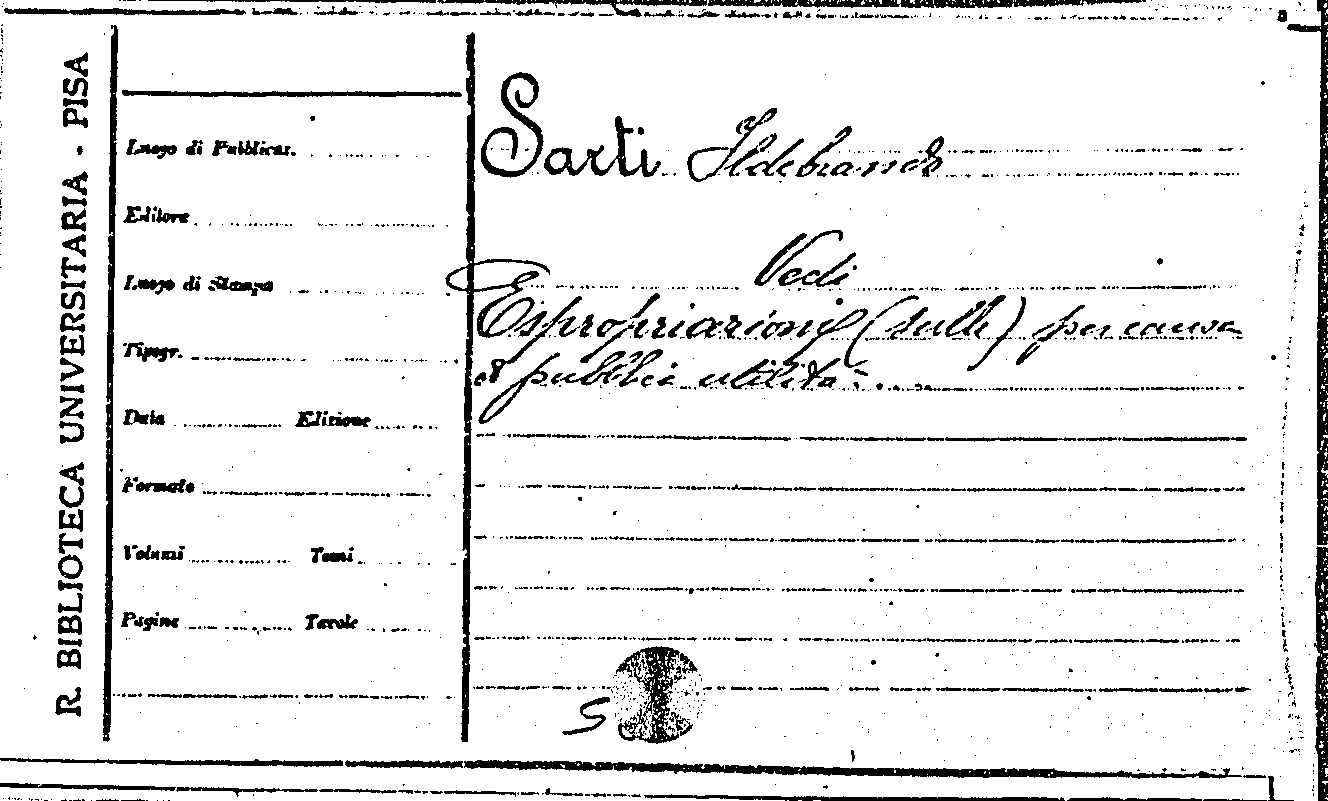 R. BIBLIOTECA UNIVERSITARIA - PISA
Luogo di Pubblicaz.
Editore
Luogo di Stampa
Tipogr.
Data Edizione
Formato
Volumi Tomi
Pagine Tavole
Sarti Ildebrando
Vedi
Espropriazioni (sulle) per causa
di pubblica utilità....